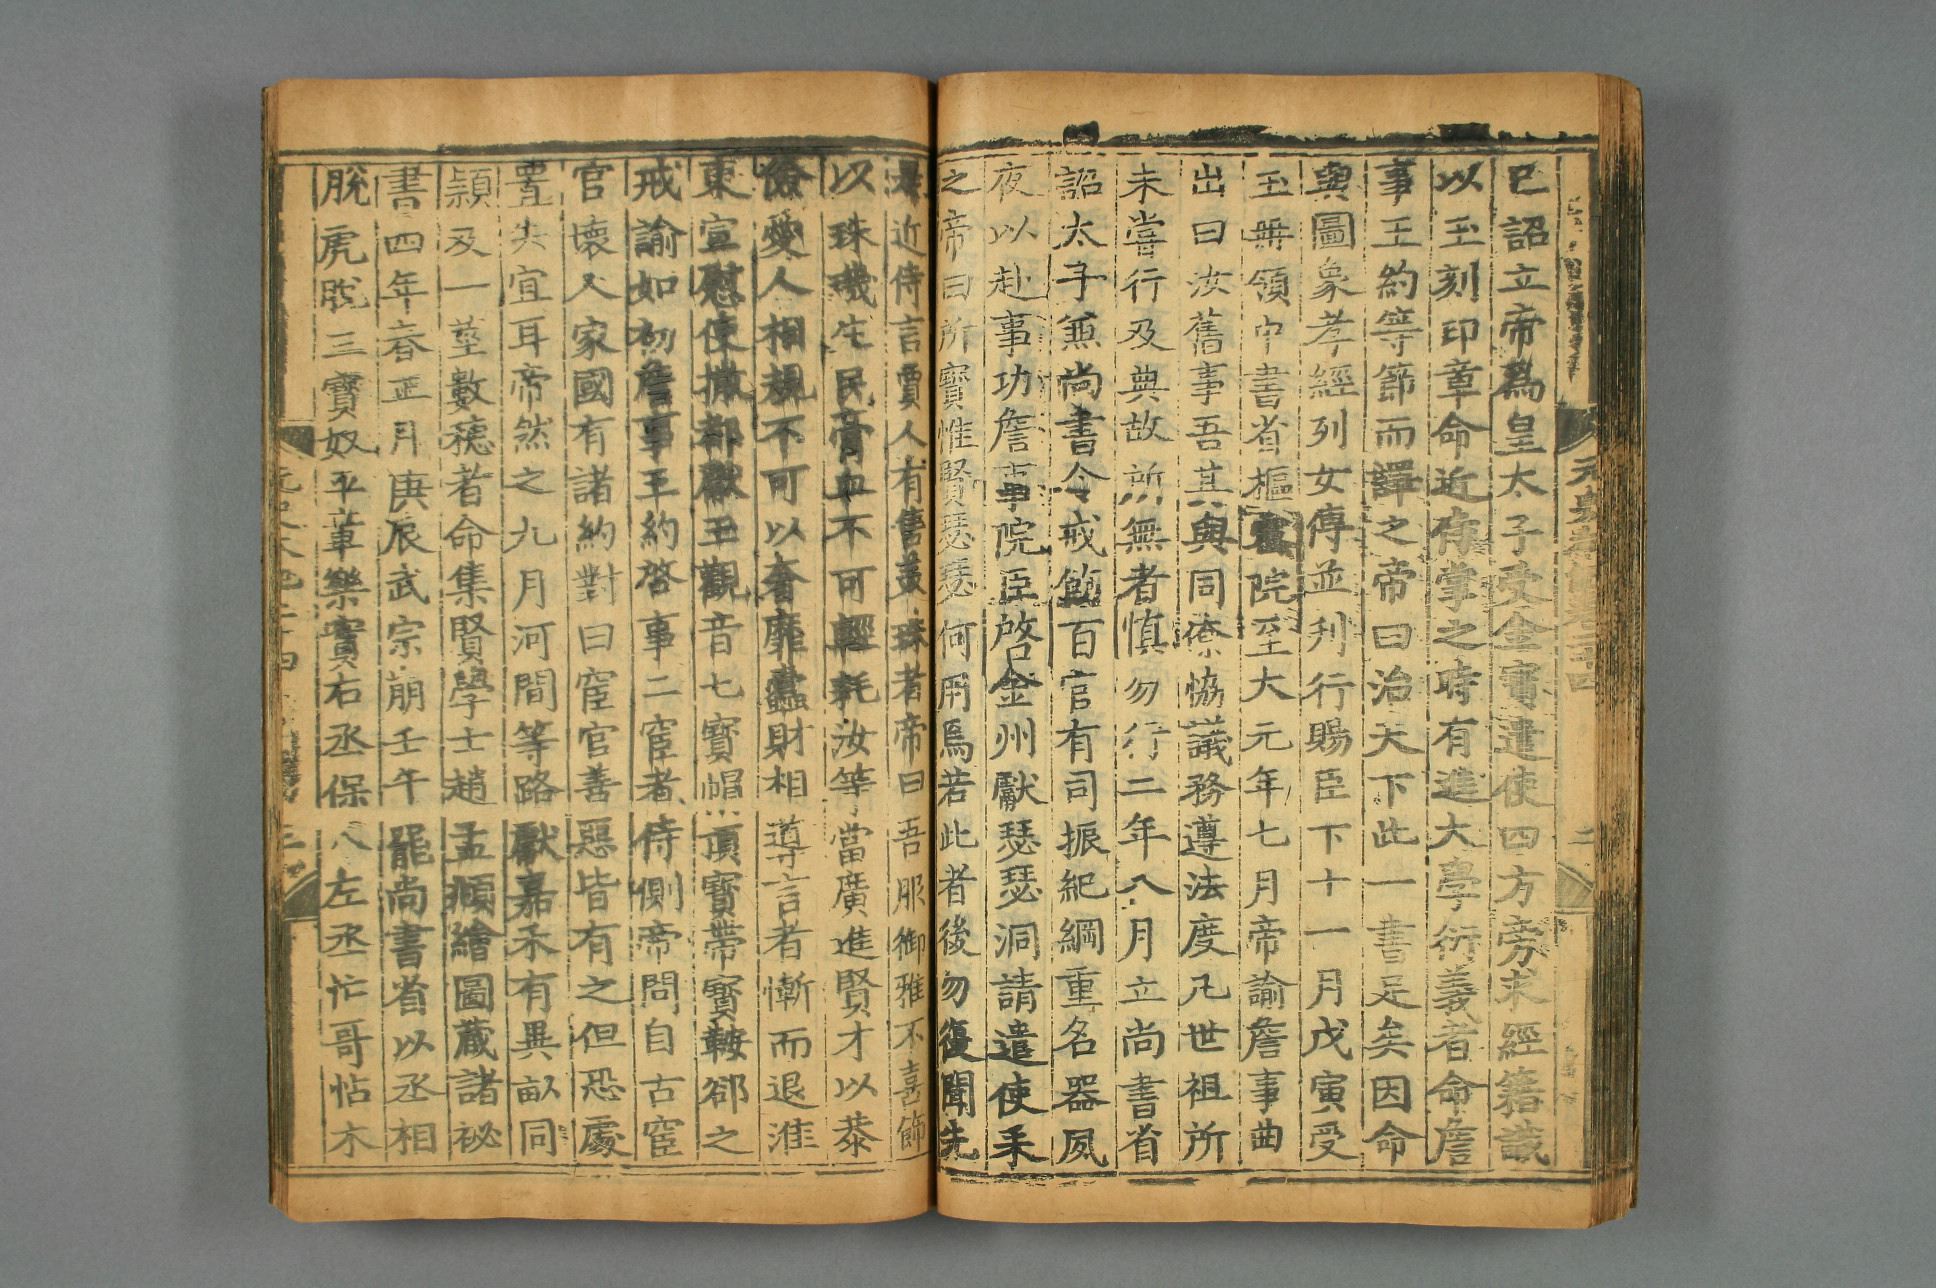 巳詔立帝爲皇太子受金寶遣使四方旁求經籍識
以玉刻印章命近侍掌之時有進大學衍義者命詹
事王約等節而譯之帝曰治天下此一書足矣因命
與圖象孝經列女傳並刋行賜臣下十一月戊寅受
玉冊領中書省樞密院至大元年七月帝諭詹事曲
出曰汝舊事吾其與同僚恊議務遵法度凡世祖所
未嘗行及典故所無者慎勿行二年八月立尚書省
詔太子兼尚書令戒飭百官有司振紀綱重名器夙
夜以赴事功詹事院臣啓金州獻瑟瑟洞請遣使采
之帝曰所寶惟賢瑟瑟何用焉若此者後勿復聞先
是近侍言賈人有售美珠者帝曰吾服御雅不喜飾
以珠璣生民膏血不可輕耗汝等當廣進賢才以恭
儉愛人相規不可以奢靡蠹財相導言者慚而退淮
東宣慰使撒都獻玉觀音七寶帽頂寶帶寶鞍卻之
戒諭如初詹事王約啓事二宦者侍側帝問自古宦
官壞人家國有諸約對曰宦官善惡皆有之但恐處
置失宜耳帝然之九月河間等路獻嘉禾有異畝同
穎及一莖數穗者命集賢學士趙孟頫繪圖藏諸祕
書四年春正月庚辰武宗崩壬午罷尚書省以丞相
脫虎脫三寶奴平章樂實右丞保八左丞忙哥帖木